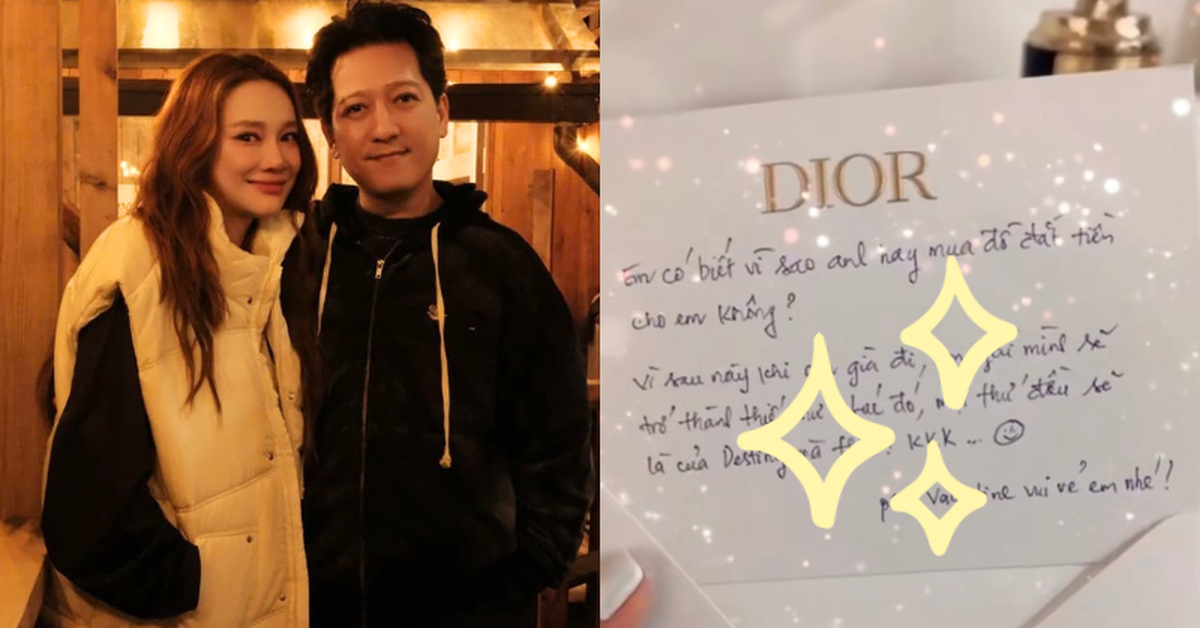 DIOR
Em có biết vì sao anh hay mua đồ đắt tiền
cho em không?
Vì sau này khi già đi, gái mình sẽ
trở thành thiếu đó, thứ đều sẽ
là của Destiny mà KKK...
Valentine vui vẻ em nhé!!